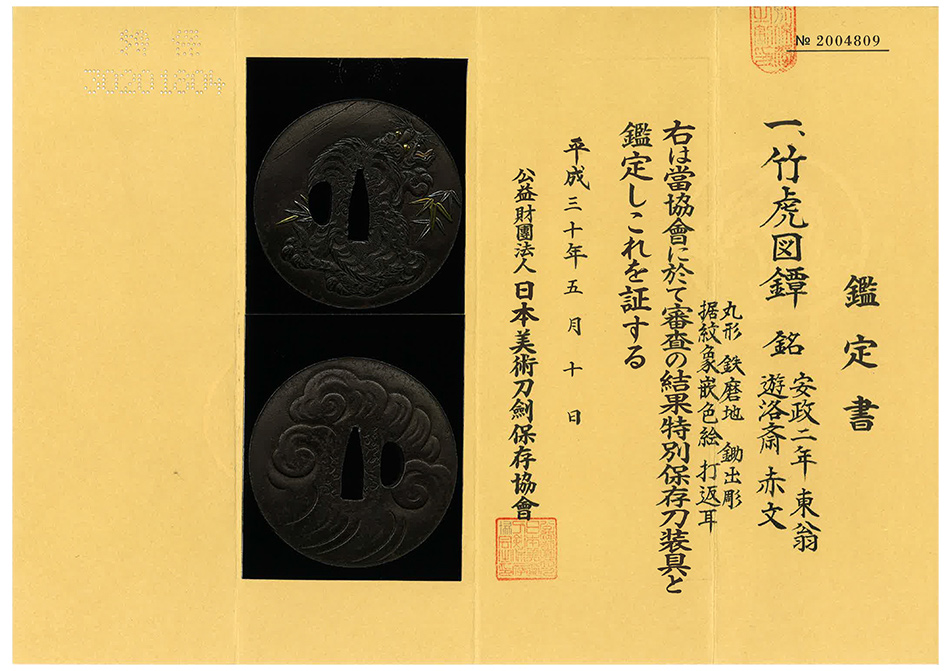 № 2004809
鑑定書
一、竹虎図鐔 銘 安政二年 東翁
遊洛斎 赤文
丸形 鉄磨地 鋤出彫
据紋象嵌色絵 打返耳
右は當協會に於て審査の結果特別保存刀装具と
鑑定しこれを証する
平成三十年五月十日
公益財團法人日本美術刀劍保存協會
特保
30201804